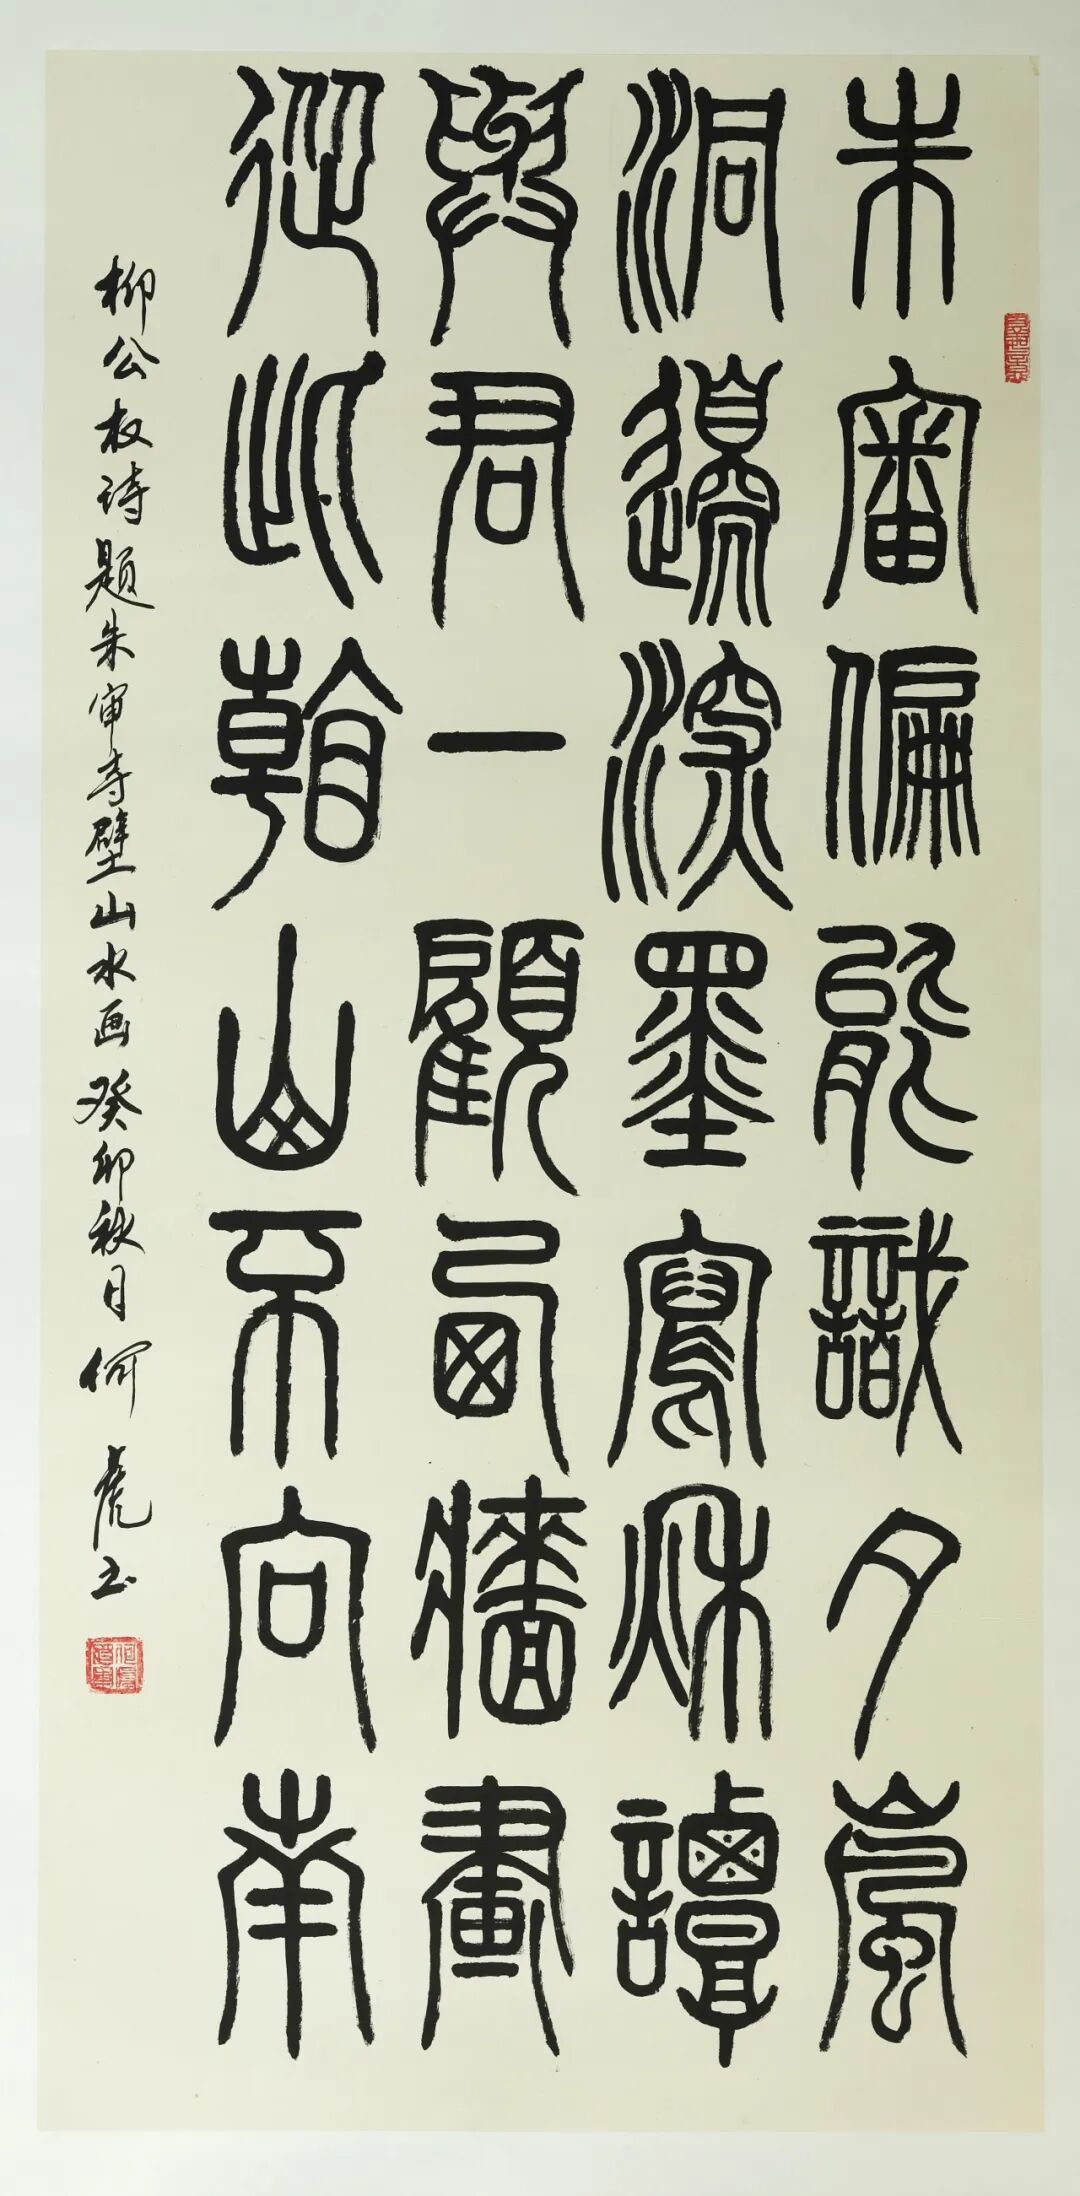 朱審偏能識夕嵐
洞邊深墨寫秋譚
與君一顧西牆畫
從此看山不向南
柳公权诗题朱审寺壁山水画癸卯秋月何虎书